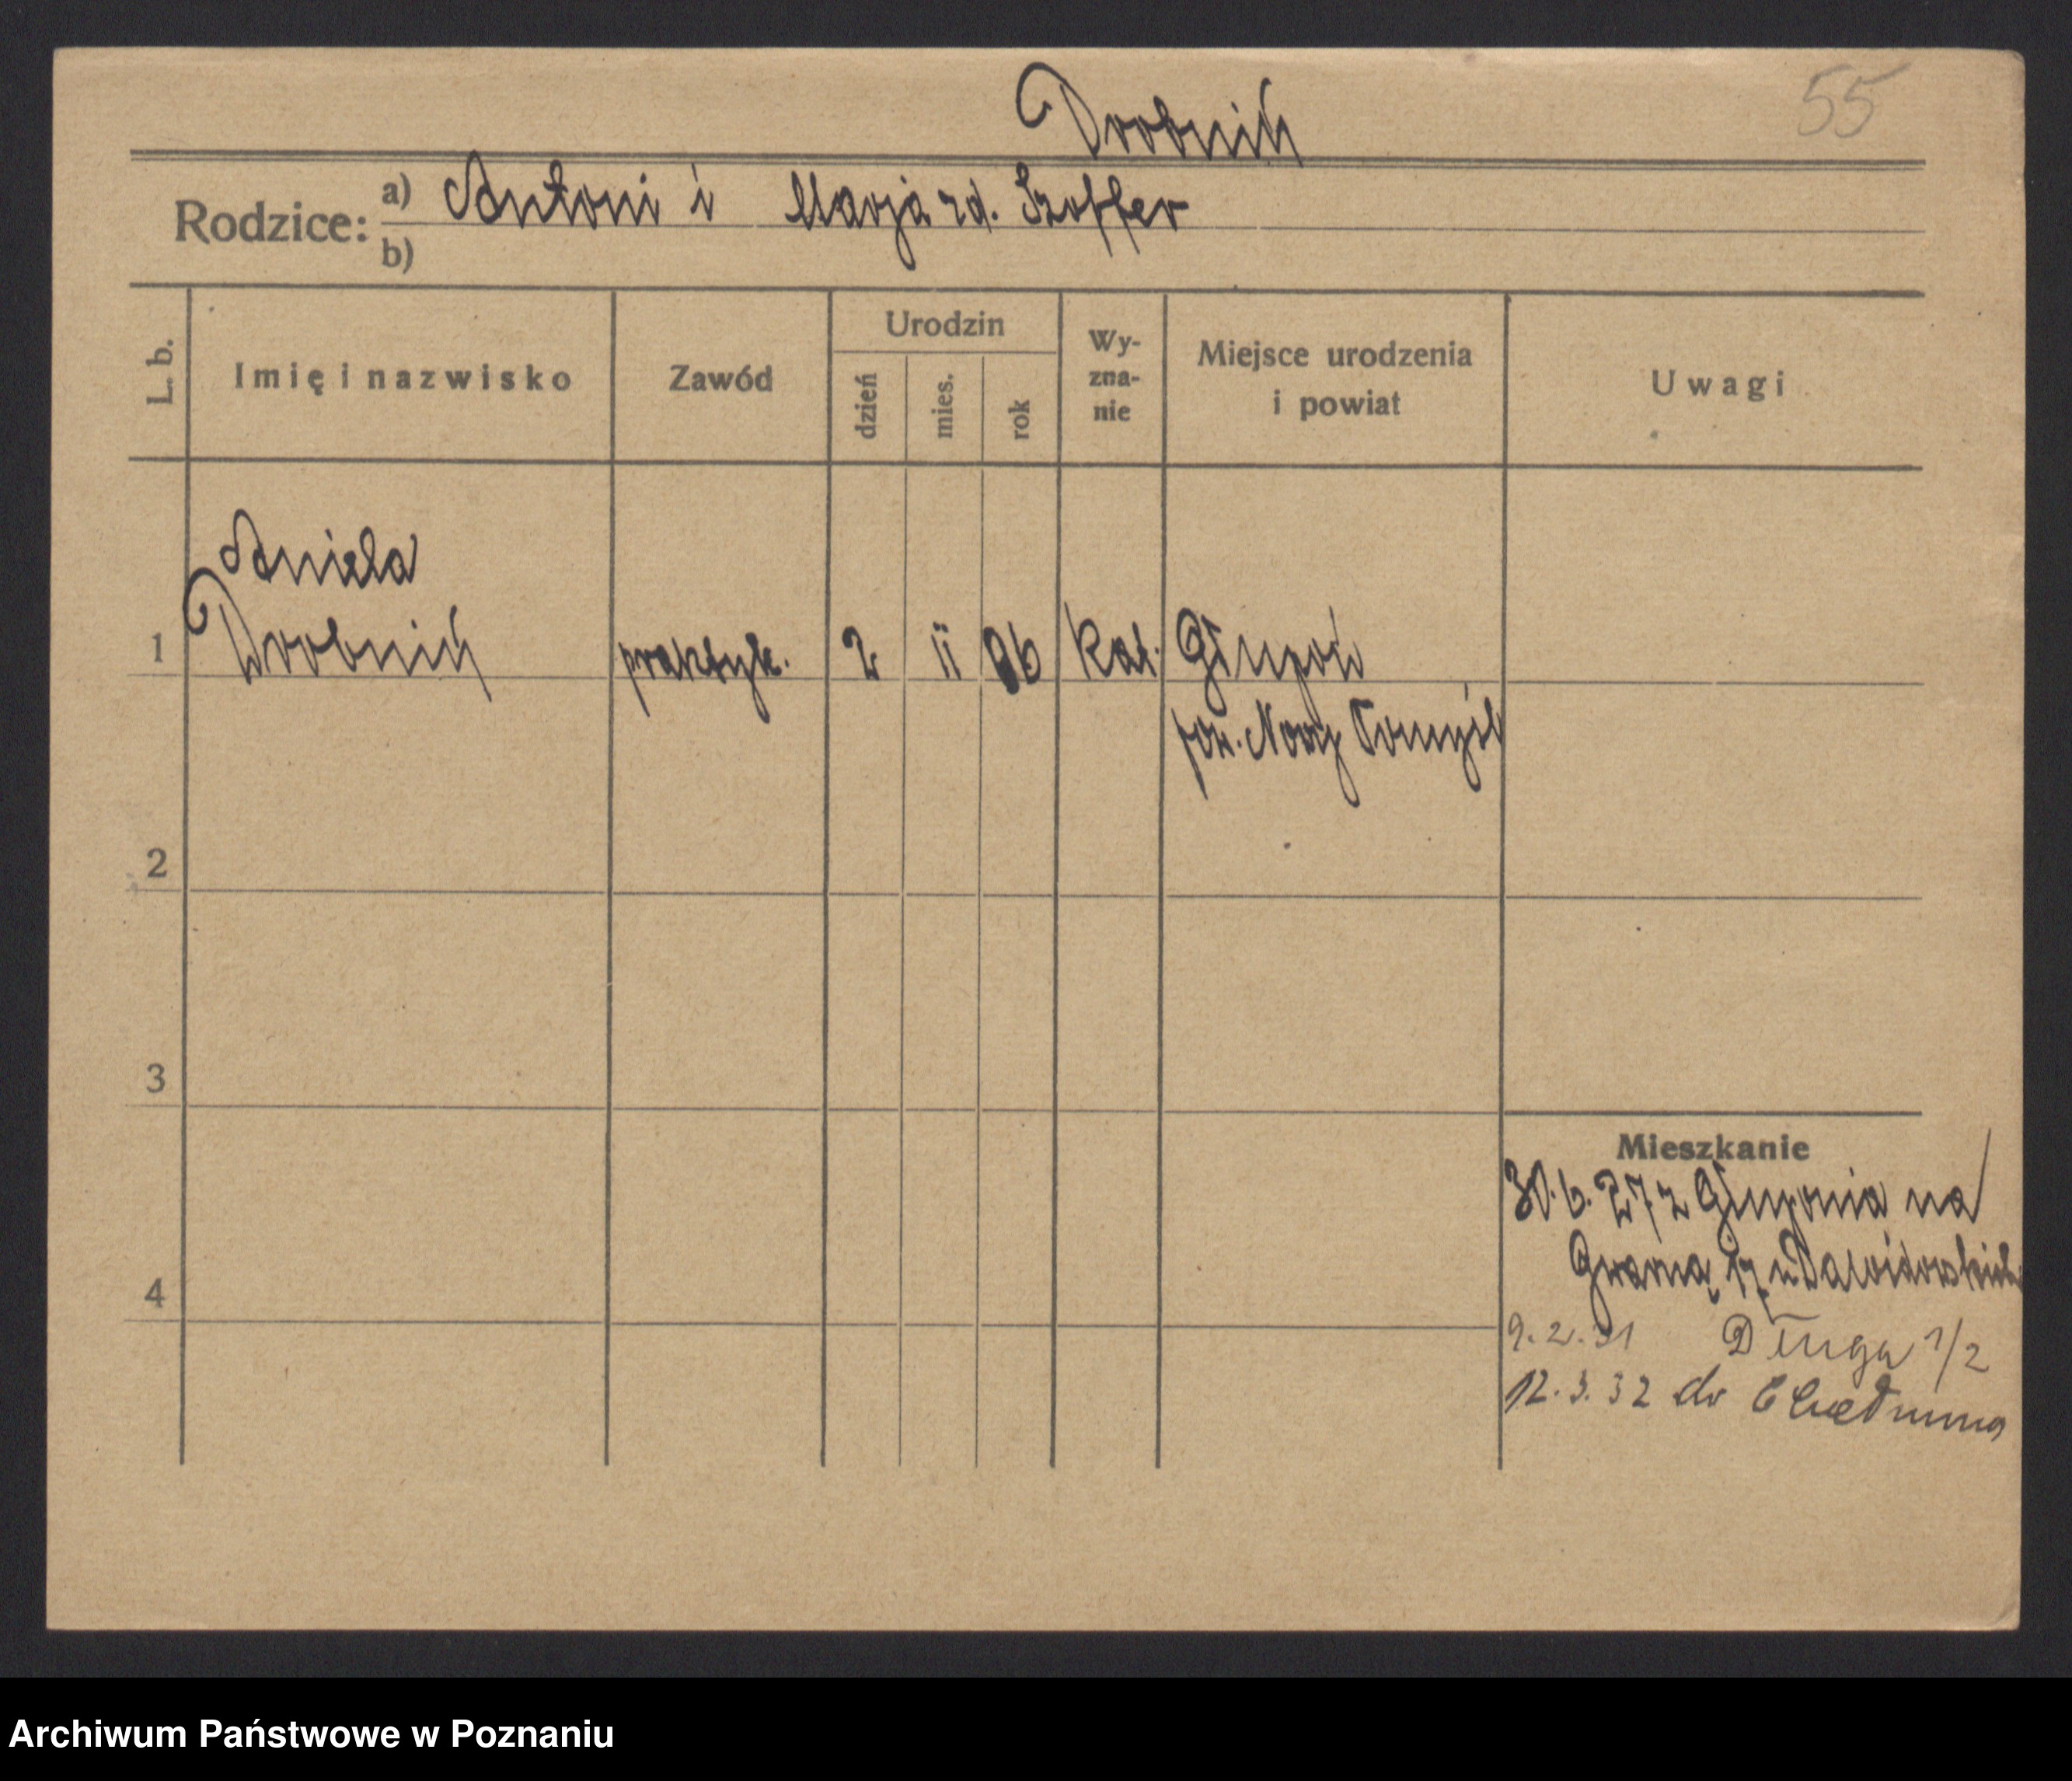 Drobnik
55
Rodzice: a) Antoni i Marja zd. Szoffer
b)
L. b.
Imię i nazwisko
Zawód
Urodzin
dzień
mies.
rok
Wy-
zna-
nie
Miejsce urodzenia
i powiat
Uwagi
Aniela
1 Drobnik praktyk. 2 ii 06 kat. Głupoń
pow. Nowy Tomyśl
2
3
4
Mieszkanie
30. 6. 27 z Głuponia na
Gwarną 17 u Dawidowskich
9. 2. 31 Długa 1/2
12. 3. 32 do Chełmna
Archiwum Państwowe w Poznaniu